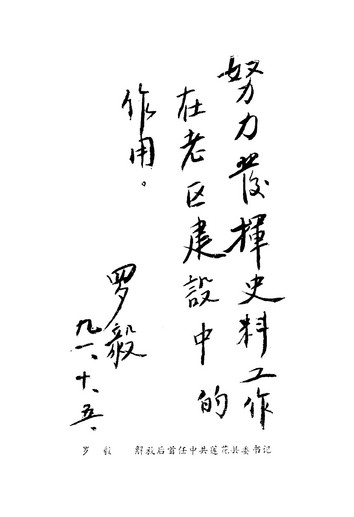 努力发揮史料工作
在老区建設中的
作用。
罗毅
九一、十、五、
罗 毅 解放后首任中共莲花县委书记